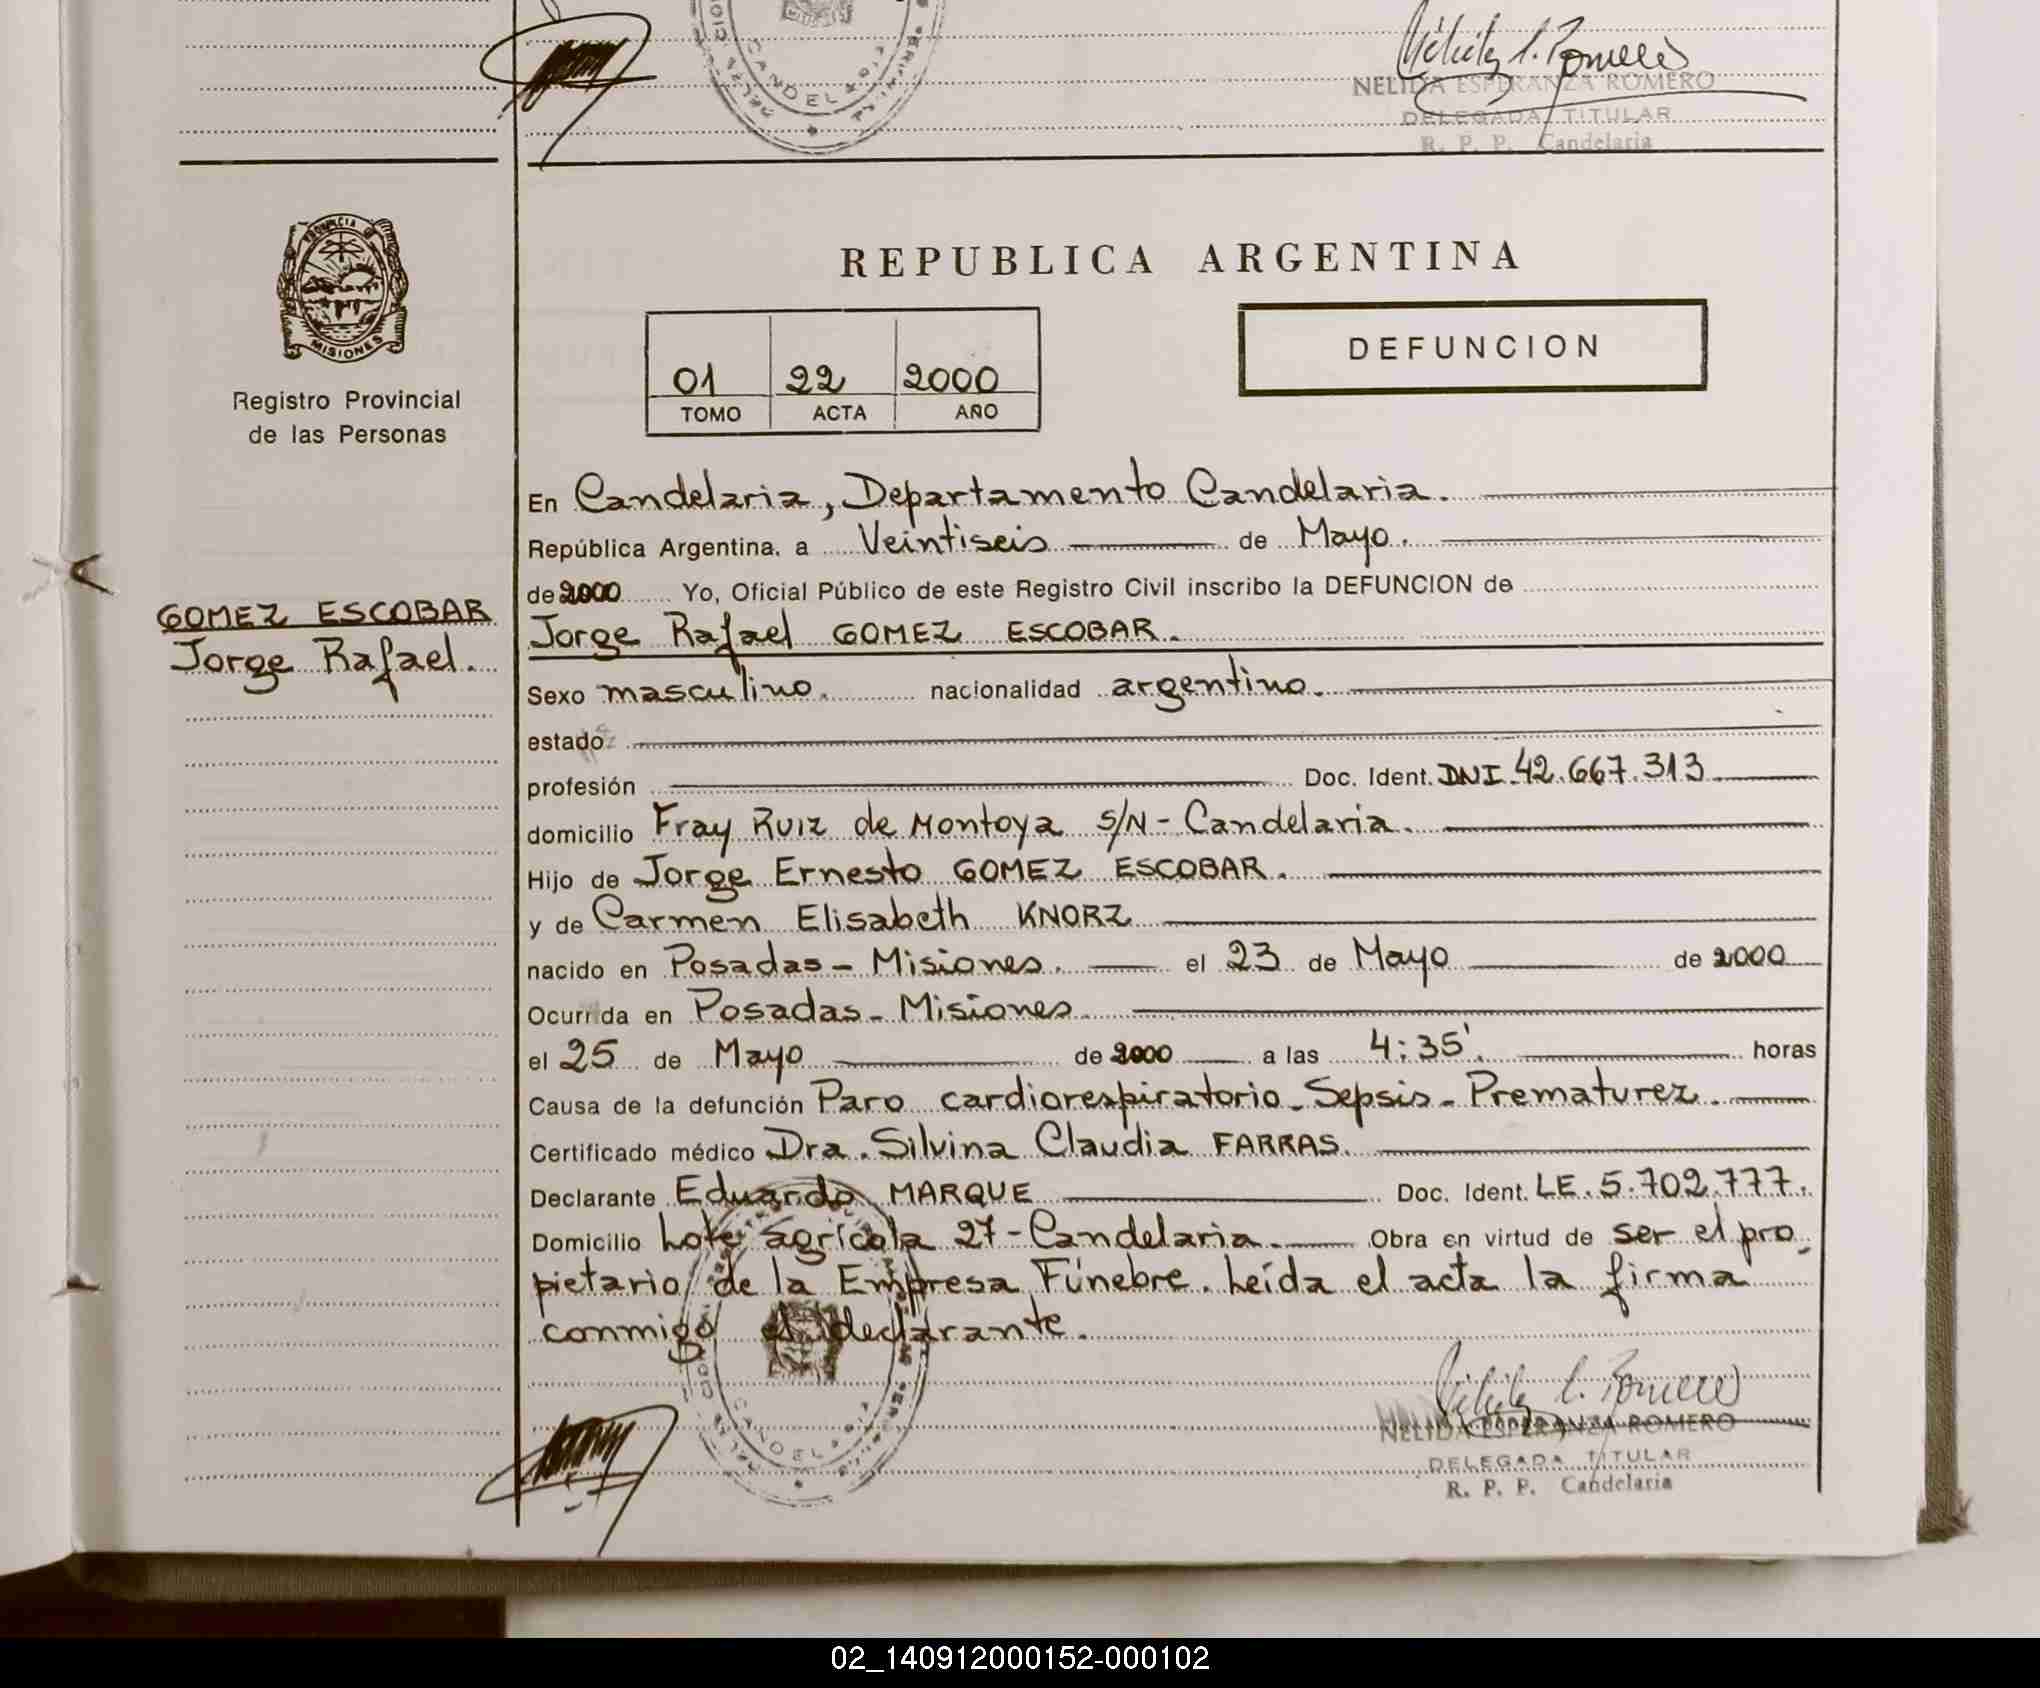 NELIDA ESPERANZA ROMERO
DELEGADA TITULAR
R. P. P. Candelaria
PROVINCIA D
MISIONES
Registro Provincial
de las Personas
GOMEZ ESCOBAR
Jorge Rafael.
REPUBLICA ARGENTINA
01 22 2000
TOMO ACTA AÑO
DEFUNCION
En Candelaria, Departamento Candelaria.
República Argentina, a Veintiseis de Mayo.
de 2000 Yo, Oficial Público de este Registro Civil inscribo la DEFUNCION de
Jorge Rafael GOMEZ ESCOBAR.
Sexo masculino. nacionalidad argentino.
estado
profesión Doc. Ident. DNI. 42.667.313
domicilio Fray Ruiz de Montoya S/N - Candelaria.
Hijo de Jorge Ernesto GOMEZ ESCOBAR.
y de Carmen Elisabeth KNORZ
nacido en Posadas - Misiones. el 23 de Mayo de 2000
Ocurrida en Posadas - Misiones
el 25 de Mayo de 2000 a las 4:35'. horas
Causa de la defunción Paro cardiorespiratorio - Sepsis - Prematurez.
Certificado médico Dra. Silvina Claudia FARRAS.
Declarante Eduardo MARQUE Doc. Ident. LE. 5.702.777.
Domicilio Lote agrícola 27 - Candelaria. Obra en virtud de ser el pro-
pietario de la Empresa Fúnebre. Leída el acta la firma
conmigo el declarante.
NELIDA ESPERANZA ROMERO
DELEGADA TITULAR
R. P. P. Candelaria
02_140912000152-000102